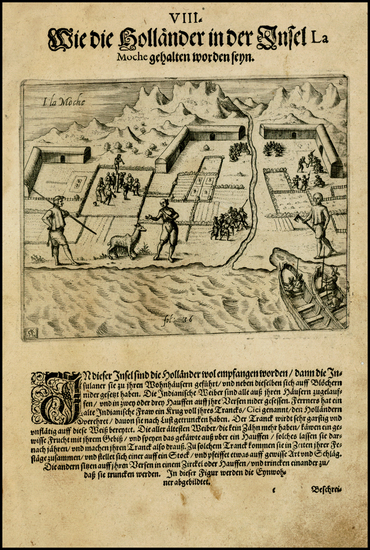 VIII.
Wie die Holländer in der Insel La
Moche gehalten worden seyn.
I la Moche
fol. 26
IN dieser Insel sind die Holländer wol empfangen worden / dann die In-
sulaner sie zu ihren Wohnhäusern geführt / und neben dieselben sich auff Blöchern
nider gesetzt haben. Die Indianische Weiber sind alle auß ihren Häusern zugelauf-
fen / und in zwey oder drey Hauffen auff ihre Versen nider gesessen. Ferrners hat ein
alte Indianische Fraw ein Krug voll ihres Trancks / Cici genannt / den Holländern
verehret / davon sie nach Lust getruncken haben. Der Tranck wirdt sehr garstig und
unflätig auff diese Weiß bereytet. Die aller ältesten Weiber / die kein Zähn mehr haben / käwen ein ge-
wisse Frucht mit ihrem Gebiß / und speyen das gekäwte auß uber ein Hauffen / solches lassen sie dar-
nach jähren / und machen ihren Tranck also drauß. Zu solchem Tranck kommen sie in Zeiten ihrer Fe-
stäge zusammen / und stellet sich einer auff ein Stock / und pfeiffet etwas auff gewisse Art und Schläg.
Die andern sitzen auff ihren Versen in einem Zirckel oder Hauffen / und trincken einander zu /
daß sie truncken werden. In dieser Figur werden die Eynwoh-
ner abgebildet.
c
Beschrei-